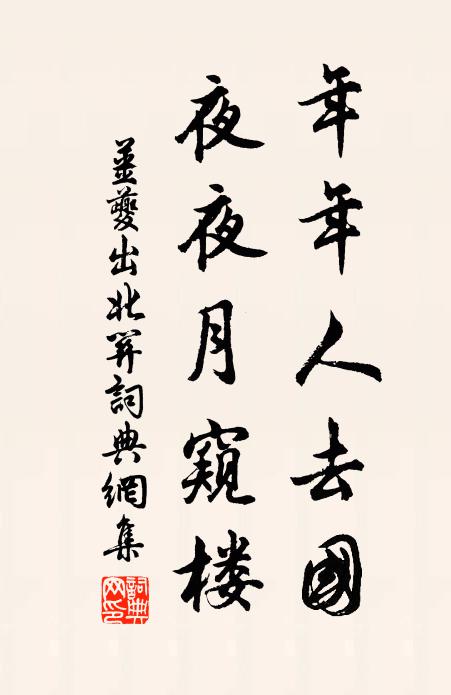 年年人去國
夜夜月窺楼
姜夔出北關詞典網集
詞典網印